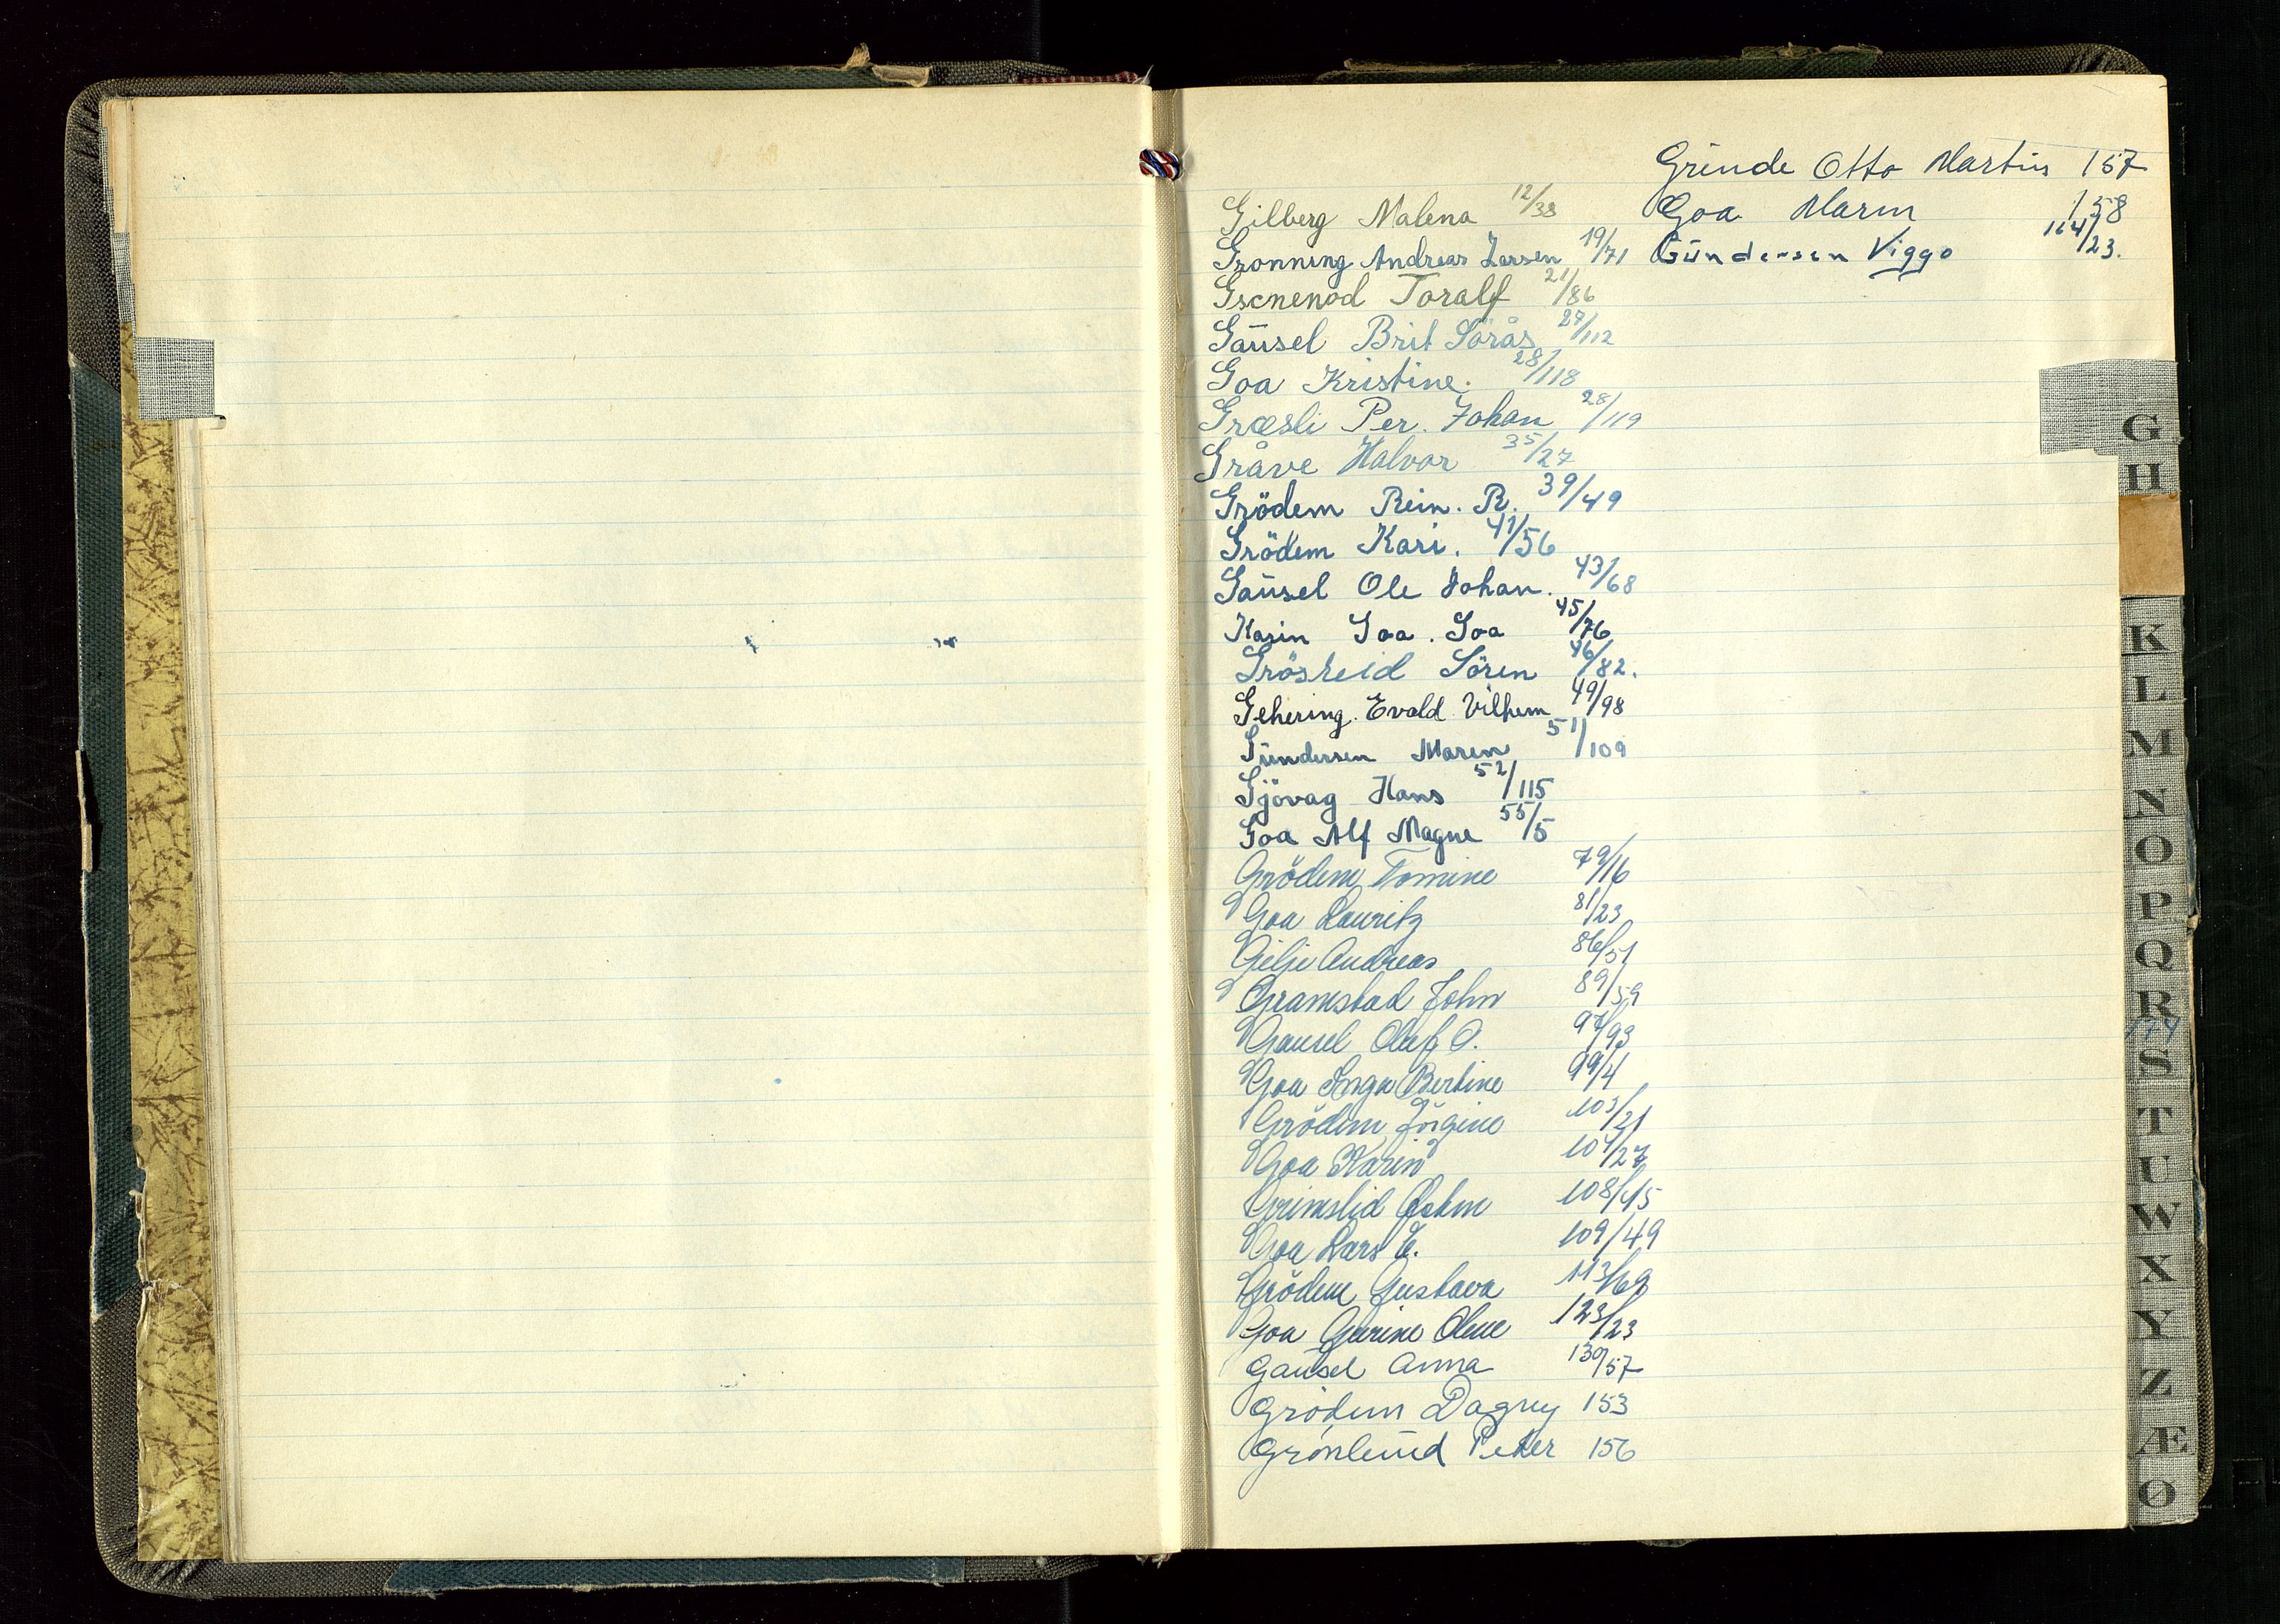 Gilberg Malena 12/38
Gronning Andreas Larsen 19/71
Toralf 21/86
Gaŭsel Brit Sörås 27/112
Goa Kristine. 28/118
Græsli Per. Johan 28/119
Gråve Halvor 35/27
Grödem Rein. R. 39/49
Grödem Kari. 41/56
Gaŭsel Ole Johan. 43/68
Karin Goa. Goa 45/76
Sören 46/82.
Gehering. Evald Vilhem 49/98
Gŭndersen Maren 51/109
Gjövag Hans 52/115
Goa Alf Magne 55/5
Grödem Tomine 79/16
Goa Lauritz 81/23
Gilje Andreas 86/51
Gramstad John 89/59
Gausel Olaf O. 97/93
Goa Inga Bertine 99/4
Grödem Jörgine 103/21
Goa Karin 104/27
Grimslid 108/45
Goa Lars E. 109/49
Grödem Gustava 113/69
Goa Gurine Olene 123/23
Gaŭsel Anna 130/57
Grödem Dagny 153
Grönlŭnd Peter 156
Grinde Otto Martin 157
Goa Marin 158
Gŭndersen Viggo 164/23.
G
H
K
L
M
N
O
P
Q
R
S
T
U
W
X
Y
Z
Æ
Ø